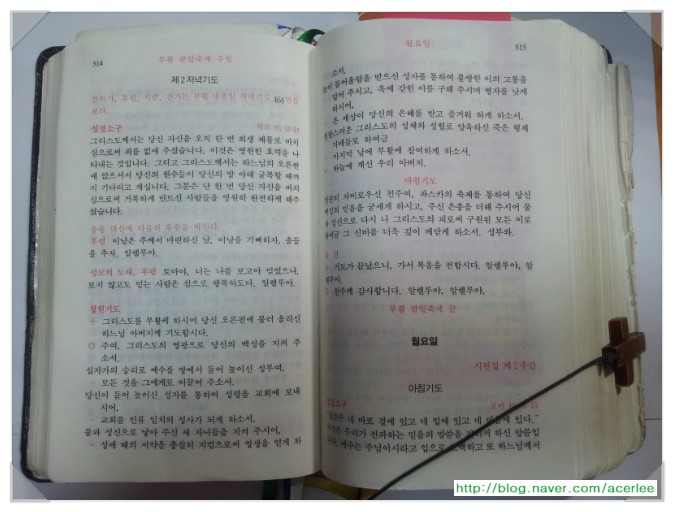 514 부활 팔일축제 주일
제2저녁기도
찬미가, 후렴, 시편, 찬가는 부활 대축일 저녁기도 464면을
보라.
성경소구 히브 10, 12-14
그리스도께서는 당신 자신을 오직 한 번 희생 제물로 바치
심으로써 죄를 없애 주셨습니다. 이것은 영원한 효력을 나
타내는 것입니다. 그리고 그리스도께서는 하느님의 오른편
에 앉으셔서 당신의 원수들이 당신의 발 아래 굴복할 때까
지 기다리고 계십니다. 그분은 단 한 번 당신 자신을 바치
심으로써 거룩하게 만드신 사람들을 영원히 완전하게 해주
셨습니다.
응송 대신에 다음의 후렴을 바친다.
후렴 이날은 주께서 마련하신 날, 이날을 기뻐하자, 춤들
을 추자. 알렐루야.
성모의 노래, 후렴 토마야, 너는 나를 보고야 믿었으나,
보지 않고도 믿는 사람은 참으로 행복하도다. 알렐루야.
청원기도
그리스도를 부활케 하시어 당신 오른편에 불러 올리신
하느님 아버지께 기도합시다.
주여, 그리스도의 영광으로 당신의 백성을 지켜 주
소서.
십자가의 승리로 예수를 땅에서 들어 높이신 성부여,
- 모든 것을 그에게로 이끌어 주소서.
당신이 들어 높이신 성자를 통하여 성령을 교회에 보내
시어,
- 교회를 인류 일치의 성사가 되게 하소서.
물과 성신으로 낳아 주신 새 자녀들을 지켜 주시어,
- 성세 때의 서약을 충실히 지킴으로써 영생을 얻게 하
월요일 515
소서.
들어올림을 받으신 성자를 통하여 불쌍한 이의 고통을
덜어 주시고, 옥에 갇힌 이를 구해 주시며 병자를 낫게
하시어,
온 세상이 당신의 은혜를 받고 즐거워 하게 하소서.
그리스도의 성체와 성혈로 양육하신 죽은 형제
자매들로 하여금
마지막 날에 부활에 참여하게 하소서.
하늘에 계신 우리 아버지.
마침기도
자비로우신 천주여, 파스카의 축제를 통하여 당신
백성의 믿음을 굳세게 하시고, 주신 은총을 더해 주시어 물
과 성신으로 다시 나 그리스도의 피로써 구원된 모든 이로
하여금 그 신비를 더욱 깊이 깨닫게 하소서. 성부와.
파견
기도가 끝났으니, 가서 복음을 전합시다. 알렐루야, 알
렐루야.
천주께 감사합니다. 알렐루야, 알렐루야.
부활 팔일축제 끝
월요일
시편집 제2주간
아침기도
성경소구 로마
말씀은 네 바로 곁에 있고 네 입에 있고 네 마음에 있다."
우리가 전파하는 믿음의 말씀을 가리켜 하신 말씀입
니다. 예수는 주님이시라고 입으로 고백하고 또 하느님께서
http://blog.naver.com/acerlee